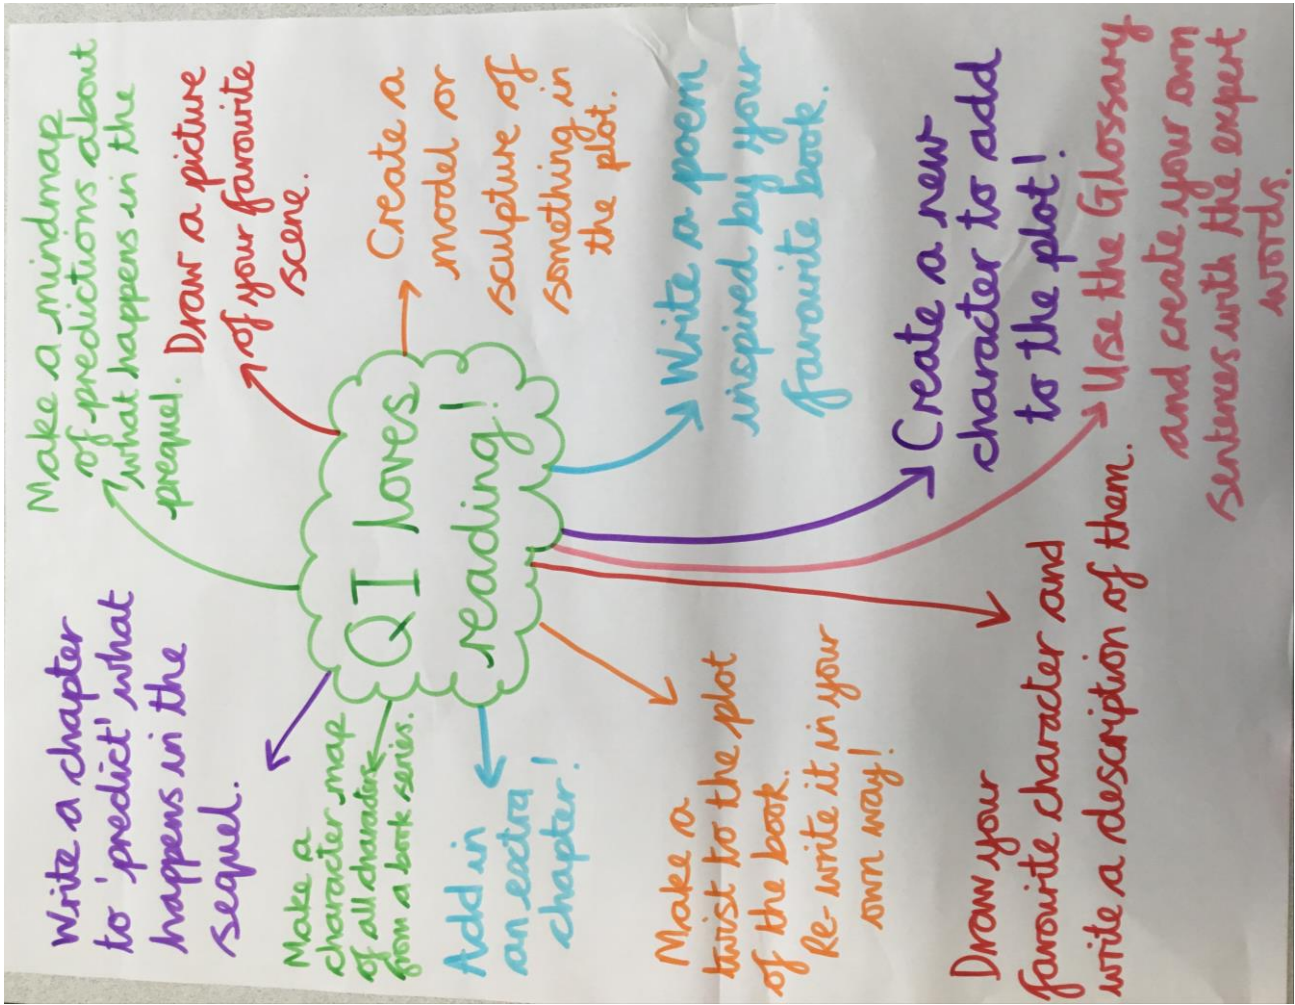 QI loves
reading!
Write a chapter
to 'predict' what
happens in the
sequel.
Make a mindmap
of predictions about
what happens in the
prequel.
Draw a picture
of your favourite
scene.
Create a
model or
sculpture of
something in
the plot.
Write a poem
inspired by your
favourite book.
Create a new
character to add
to the plot!
Use the Glossary
and create your own
sentences with the expert
words.
Draw your
favourite character and
write a description of them.
Make a
twist to the plot
of the book.
Re-write it in your
own way!
Add in
an extra
chapter!
Make a
character map
of all characters
from a book series.